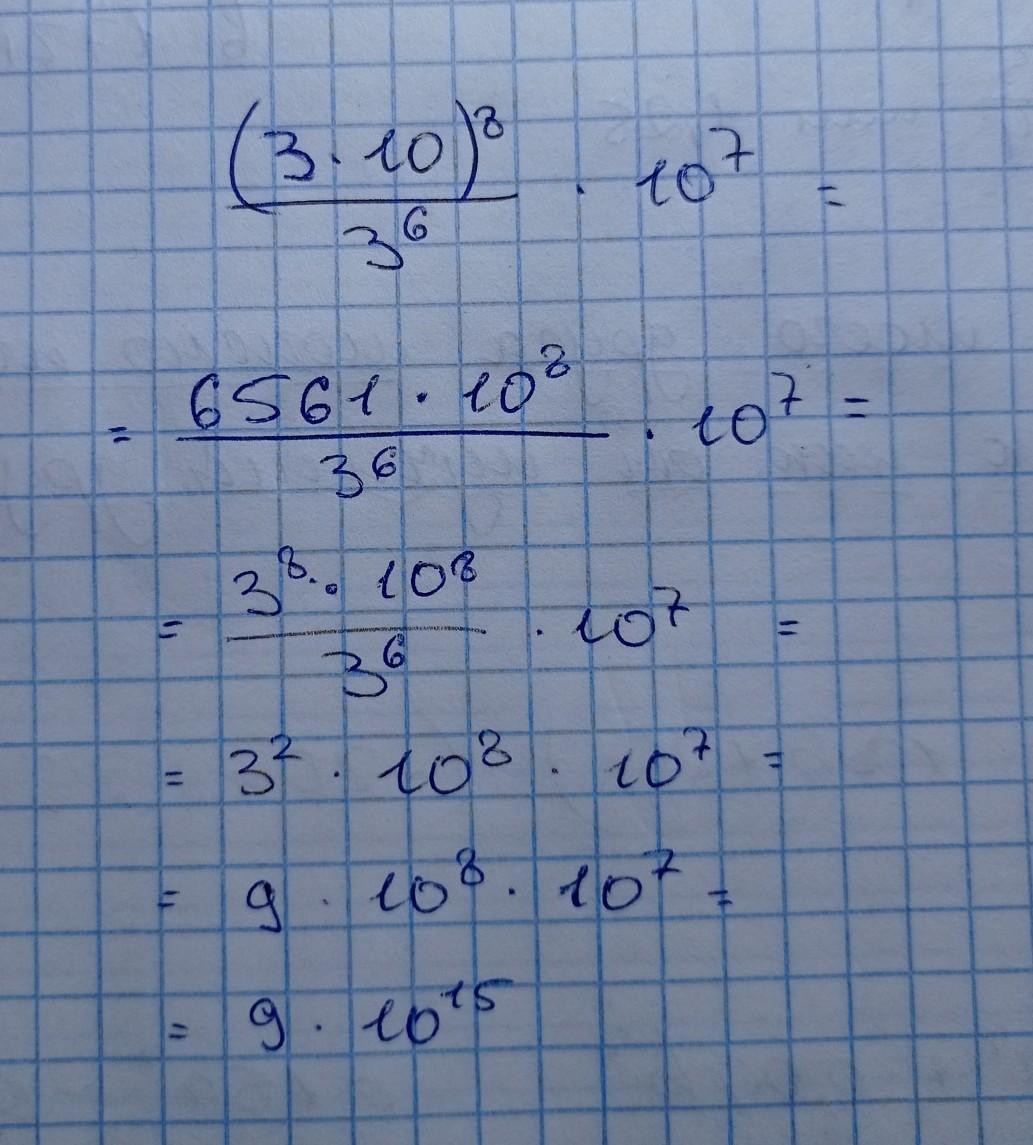 (3 · 10)⁸ / 3⁶ · 10⁷ =
= 6561 · 10⁸ / 3⁶ · 10⁷ =
= 3⁸ · 10⁸ / 3⁶ · 10⁷ =
= 3² · 10⁸ · 10⁷ =
= 9 · 10⁸ · 10⁷ =
= 9 · 10¹⁵